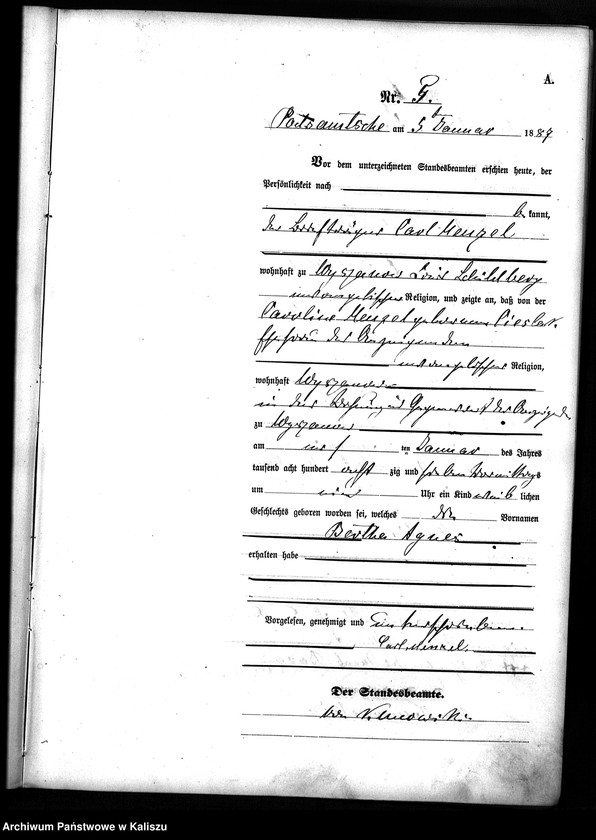 A.
Nr. 5.
am 5 Januar 1887
Vor dem unterzeichneten Standesbeamten erschien heute, der
Persönlichkeit nach
kannt,
der Briefträger Carl Menzel
wohnhaft zu Wyszanow
evangelischer Religion, und zeigte an, daß von der
Caroline Menzel geborenen Cieslak
Ehefrau des Anzeigenden
evangelischer Religion,
wohnhaft Wyszanow
in der Wohnung des
zu Wyszanow
am ten Januar des Jahres
tausend acht hundert acht zig und sieben Vormittags
um Uhr ein Kind weib lichen
Geschlechts geboren worden sei, welches Vornamen
Bertha Agnes
erhalten habe
Vorgelesen, genehmigt und unterschrieben
Carl Menzel.
Der Standesbeamte.
Archiwum Państwowe w Kaliszu